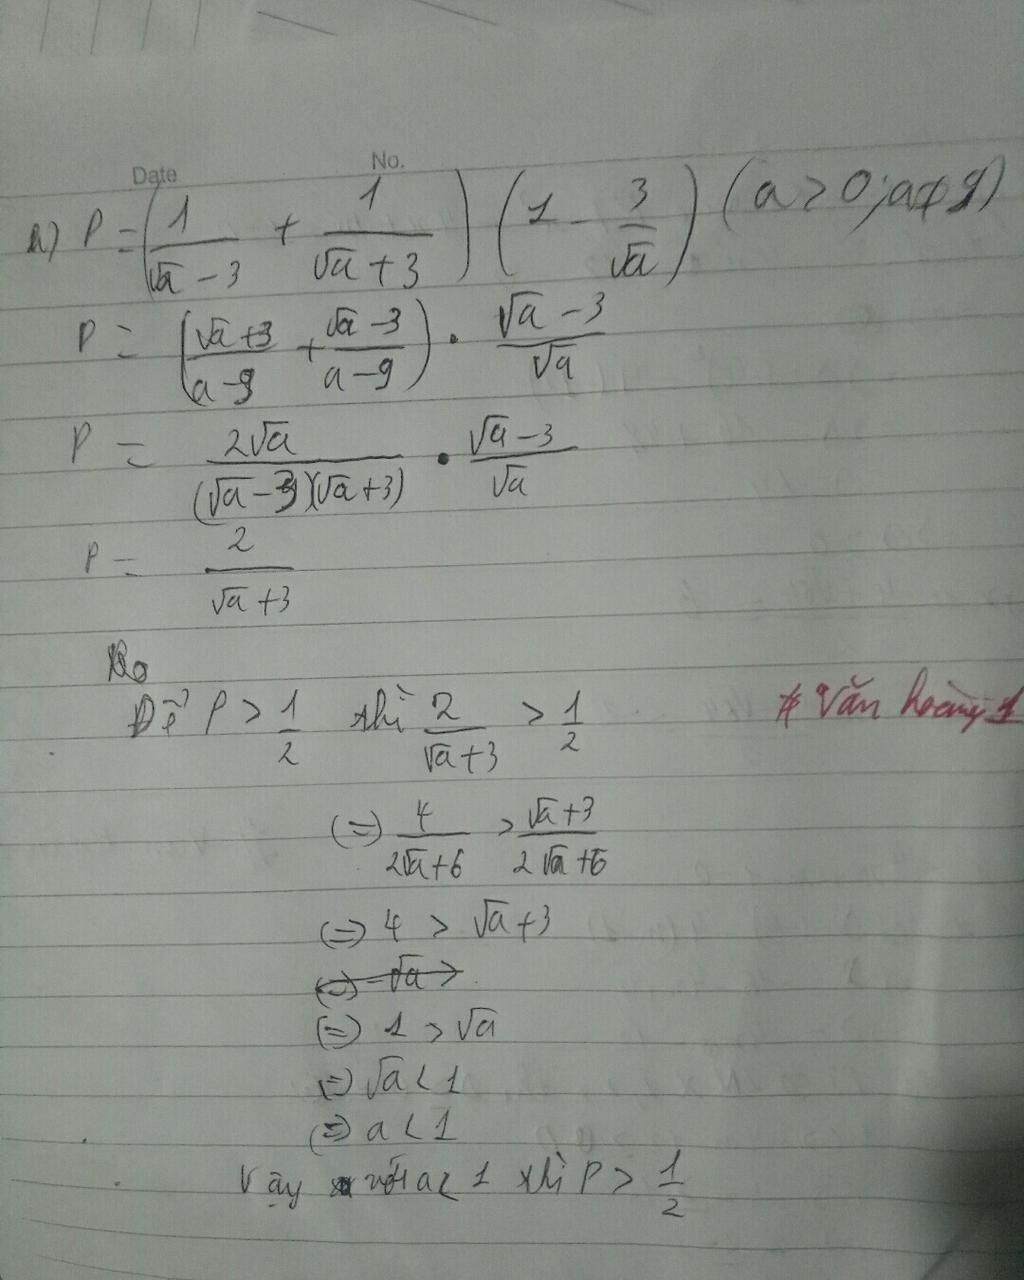 Date No.
a) P = (1/(√a - 3) + 1/(√a + 3)) (1 - 3/√a) (a > 0; a ≠ 9)
P = ((√a + 3)/(a - 9) + (√a - 3)/(a - 9)) . (√a - 3)/√a
P = 2√a/((√a - 3)(√a + 3)) . (√a - 3)/√a
P = 2/(√a + 3)
Để P > 1/2 thì 2/(√a + 3) > 1/2 # Văn hoàng 1
(=) 4/(2√a + 6) > (√a + 3)/(2√a + 6)
(=) 4 > √a + 3
(=) -√a >
(=) 1 > √a
(=) √a < 1
(=) a < 1
Vậy với a < 1 thì P > 1/2